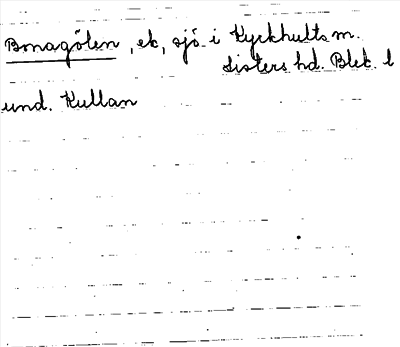 Bmagölen, ek, sjö i Kyrkhults m.
Listers hd. Blek. l
und. Kullan